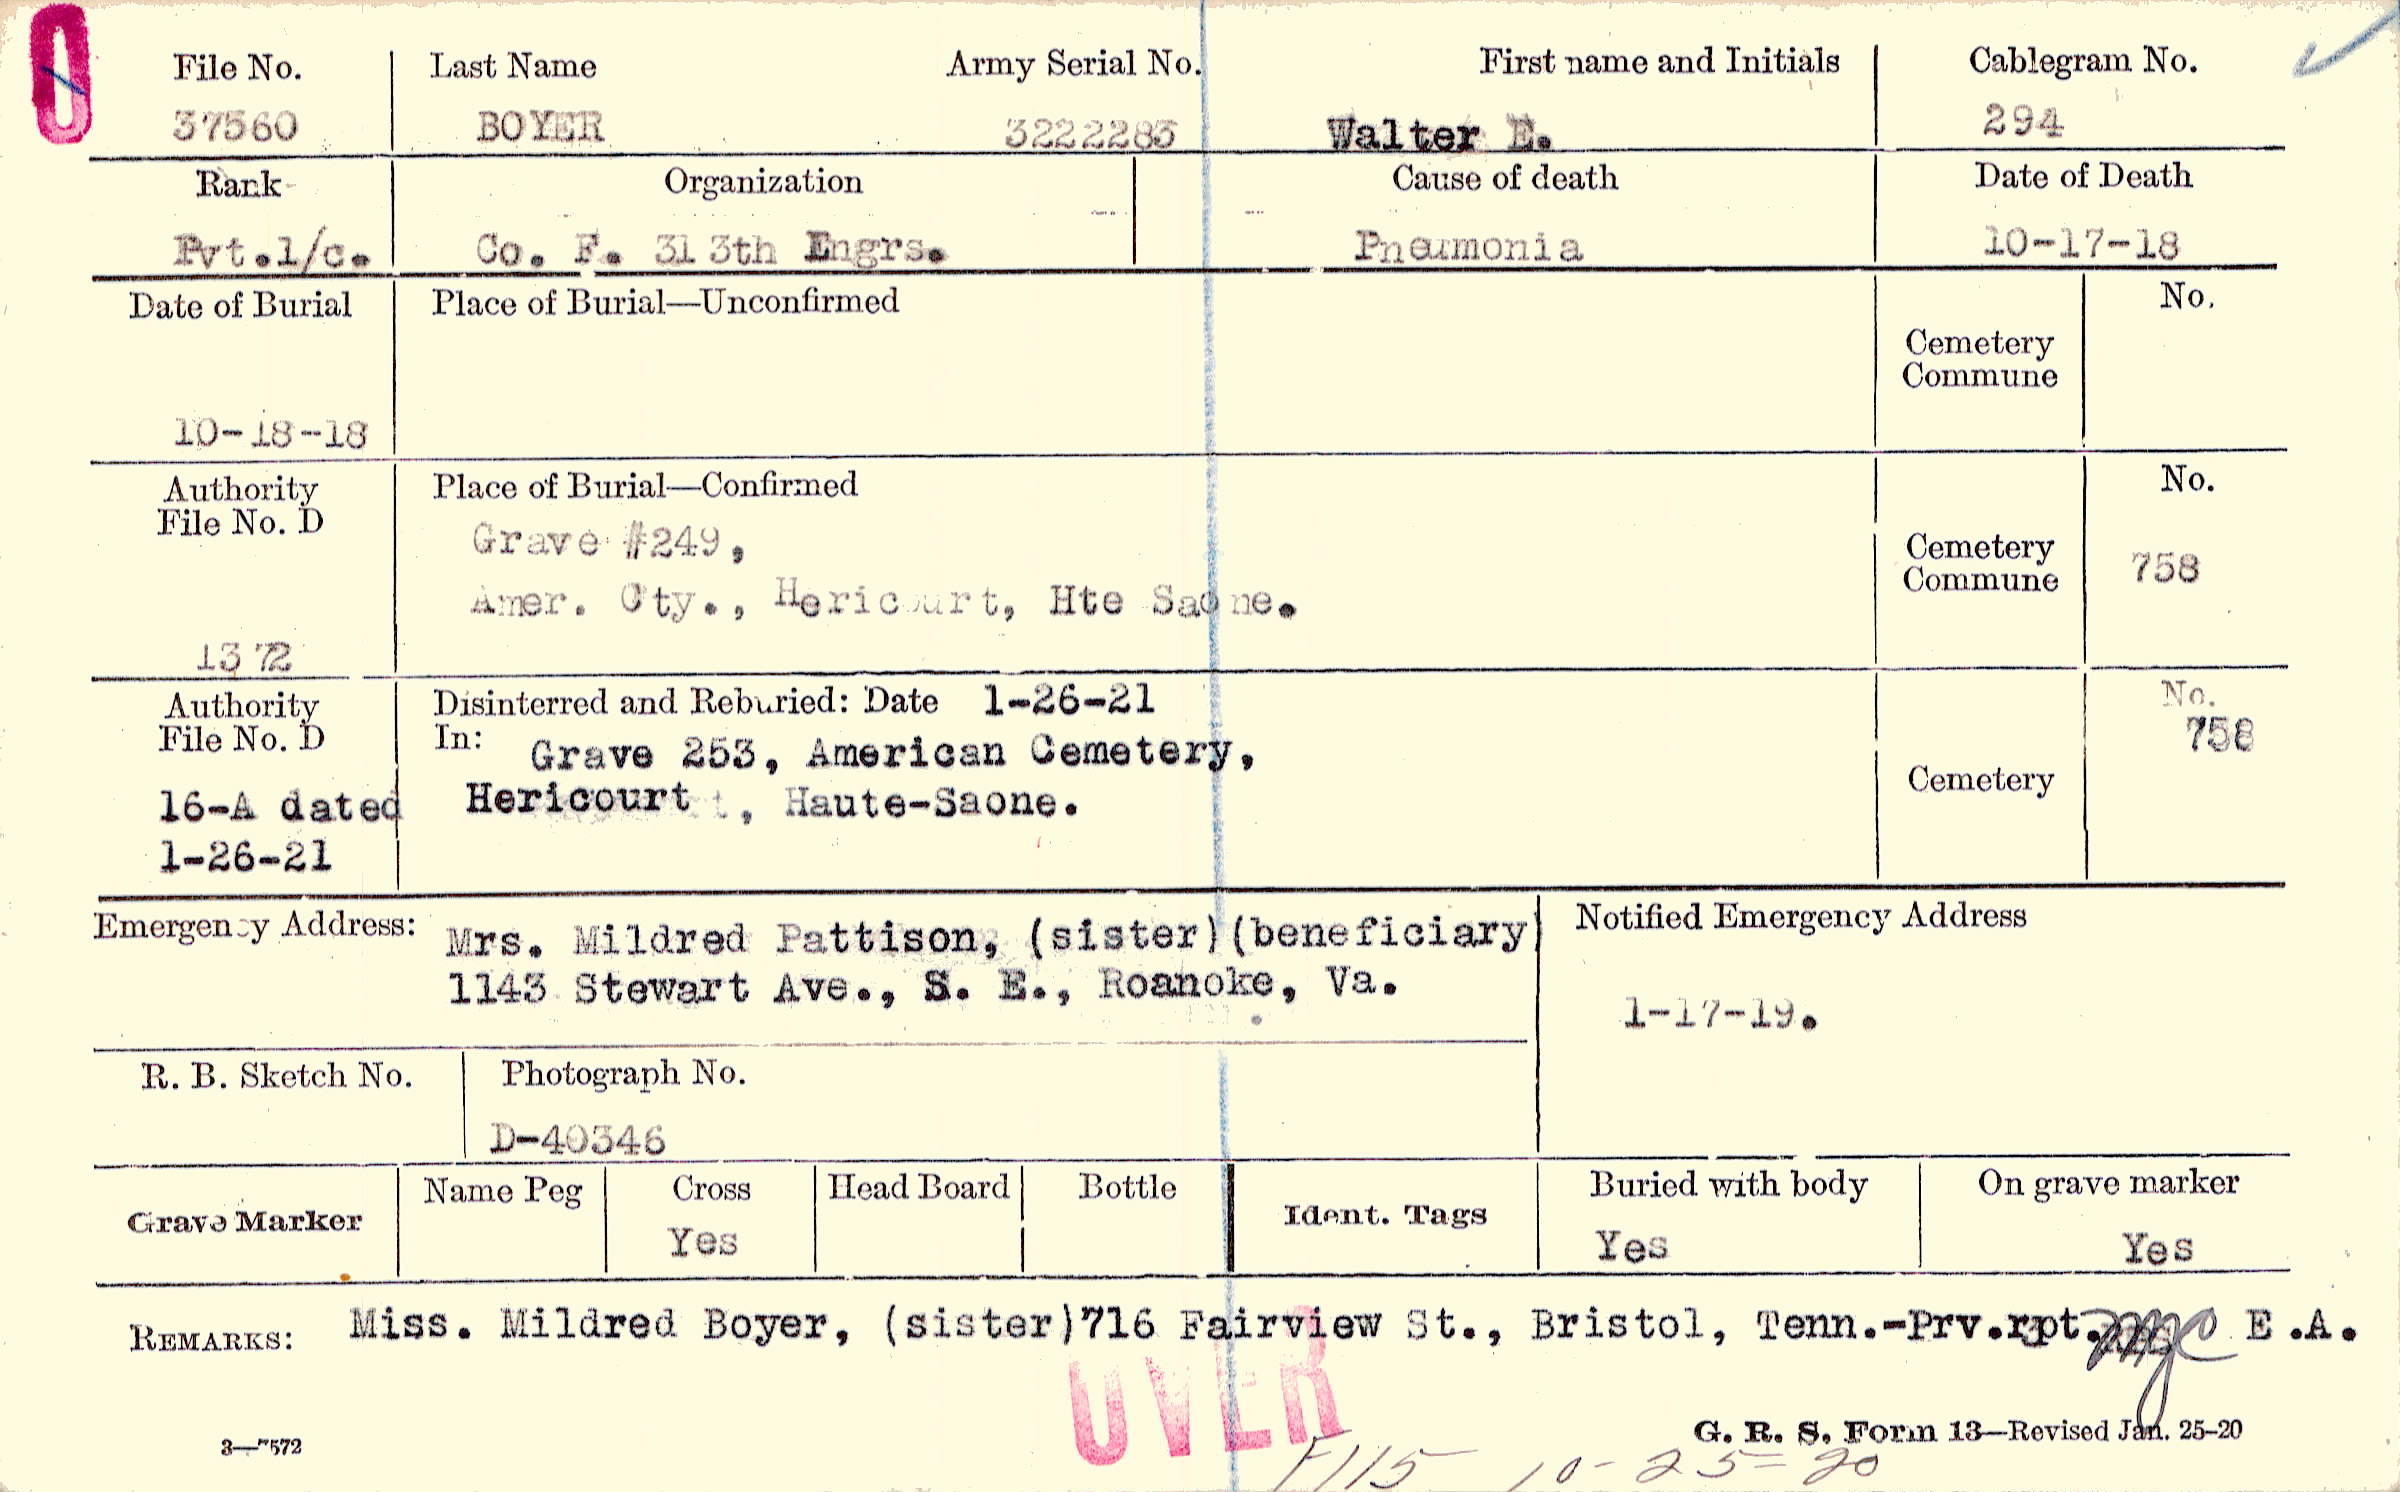 O
File No. Last Name Army Serial No. First name and Initials Cablegram No.
37560 BOYER 3222283 Walter E. 294
Rank Organization Cause of death Date of Death
Pvt.1/c. Co. F. 313th Engrs. Pneumonia 10-17-18
Date of Burial Place of Burial—Unconfirmed No.
Cemetery
Commune
10-18-18
Authority Place of Burial—Confirmed No.
File No. D
Grave #249,
Cemetery
Commune 758
Amer. Cty., Hericourt, Hte Saone.
1372
Authority Disinterred and Reburied: Date 1-26-21 No.
File No. D In: Grave 253, American Cemetery, 758
Cemetery
16-A dated Hericourt t, Haute-Saone.
1-26-21
Emergency Address: Mrs. Mildred Pattison, (sister)(beneficiary) Notified Emergency Address
1143 Stewart Ave., S. E., Roanoke, Va.
1-17-19.
R. B. Sketch No. Photograph No.
D-40346
Grave Marker Name Peg Cross Head Board Bottle Ident. Tags Buried with body On grave marker
Yes Yes Yes
REMARKS: Miss. Mildred Boyer, (sister)716 Fairview St., Bristol, Tenn.-Prv.rpt. E.A.
OVER
3—7572 G. R. S. Form 13—Revised Jan. 25-20
F115 10-25-20